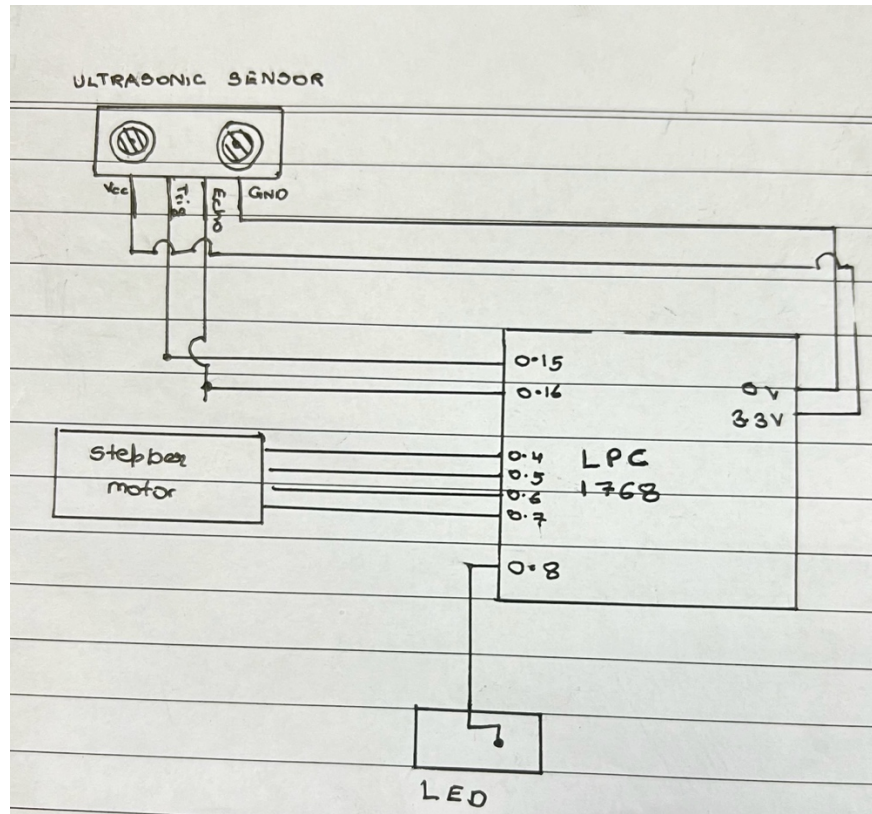 ULTRASONIC SENSOR
Vcc Trig Echo GND
0.15
0.16
0V
3.3V
stepper
motor
0.4
0.5
0.6
0.7
LPC
1768
0.8
LED